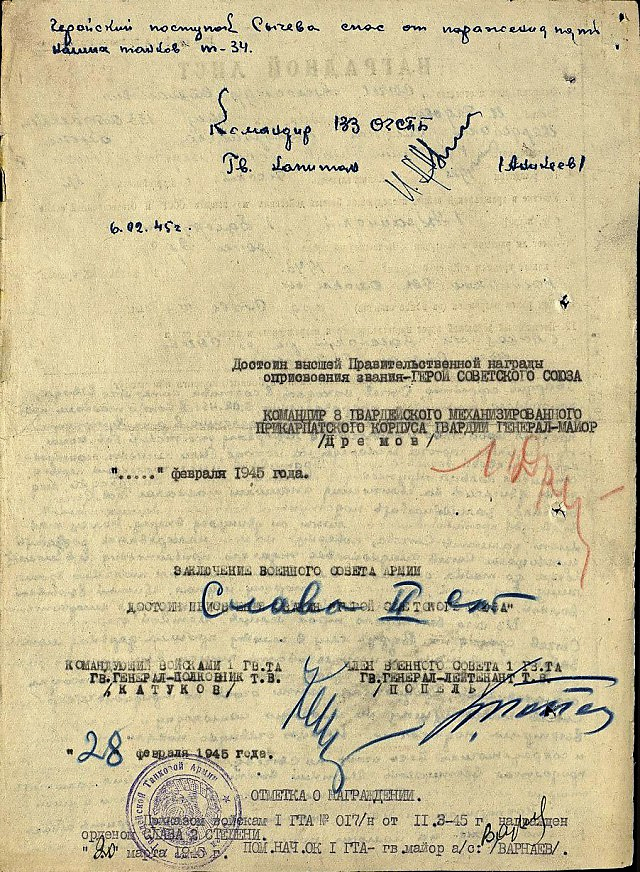 Геройский поступок Сычева спас от поражения пять
наших танков т-34.
Командир 133 ОГСПБ
Гв. Капитан /Аникеев/
6.02.45г.
Достоин высшей Правительственной награды
оприсвоения звания-ГЕРОЙ СОВЕТСКОГО СОЮЗА
КОМАНДИР 8 ГВАРДЕЙСКОГО МЕХАНИЗИРОВАННОГО
ПРИКАРПАТСКОГО КОРПУСА ГВАРДИИ ГЕНЕРАЛ-МАЙОР
/Дремов/
"....." февраля 1945 года.
ЗАКЛЮЧЕНИЕ ВОЕННОГО СОВЕТА АРМИИ
Слава II ст
ДОСТОИН ПРИСВОЕНИЯ ЗВАНИЯ "ГЕРОЙ СОВЕТСКОГО СОЮЗА"
КОМАНДУЮЩИЙ ВОЙСКАМИ 1 ГВ.ТА ЧЛЕН ВОЕННОГО СОВЕТА 1 ГВ.ТА
ГВ.ГЕНЕРАЛ-ПОЛКОВНИК Т.В. ГВ.ГЕНЕРАЛ-ЛЕЙТЕНАНТ Т.В.
/КАТУКОВ/ /ПОПЕЛЬ/
"28" февраля 1945 года.
Танковой Армии
ОТМЕТКА О НАГРАЖДЕНИИ.
Приказом войскам I ГТА № 017/н от II.3-45 г. награжден
орденом СЛАВА 2 СТЕПЕНИ.
"20" марта 1945 г. ПОМ.НАЧ.ОК I ГТА- гв.майор а/с: /ВАРНАЕВ/